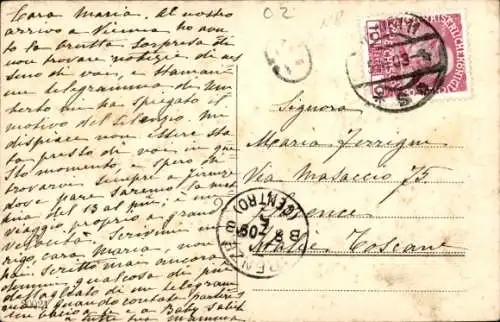 Cara Maria. Al nostro
arrivo a Vienna ho avu
to la brutta sorpresa di
non trovare notizie di as
di voi, e stamani
un telegramma di Um
berto mi ha spiegato il
motivo del silenzio. Mi
dispiace non essere sta
ta presso di voi in que
sto momento, e spero di
trovarvi sempre a Firenze
dove pare saremo la mat
tina del 13 al più; è un
viaggio proprio a gran
velocità. Scrivimi un
rigo, cara Maria, non
hai scritto mai ancora
Qualcosa di più
di un telegram
ma quando contate partire
Un bacio a te e a Baby saluti
a tutti tua Mamma
02
Signora
Maria Ferrigni
Via Masaccio 75.
Florence
Italie. Toscane
KAISERLICHE KÖNIGL
10
FIRENZE
(CENTRO)
09